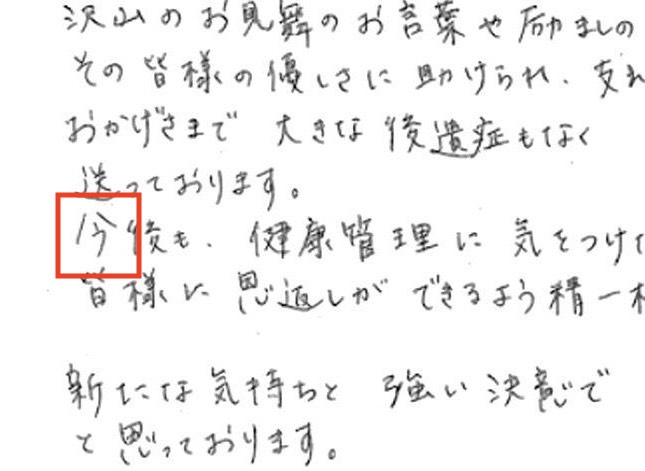 沢山のお見舞のお言葉や励ましの
その皆様の優しさに助けられ、支え
おかげさまで 大きな後遺症もなく
送っております。
今後も、健康管理に気をつけた
皆様に恩返しができるよう精一杯
新たな気持ちと 強い決意で
と思っております。